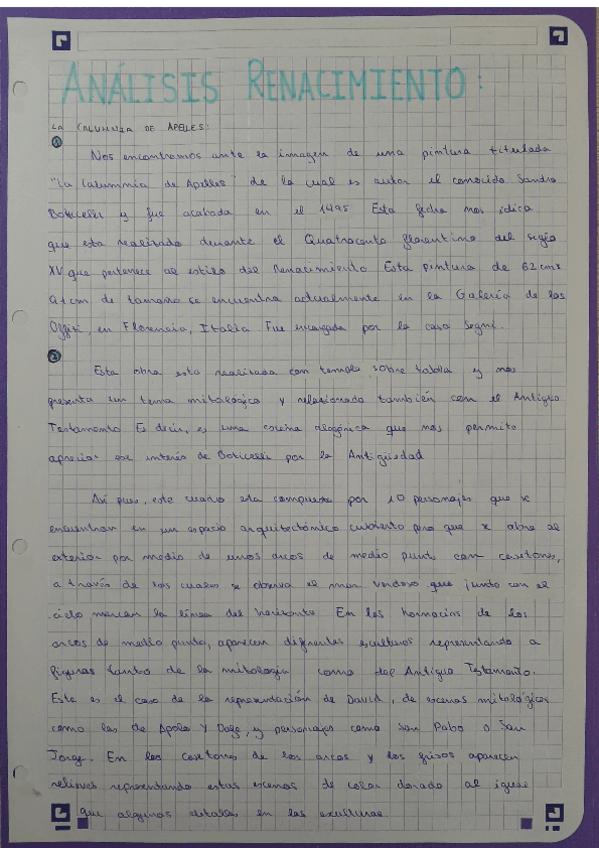 ANÁLISIS RENACIMIENTO:
LA CALUMNIA DE APELES:
1
Nos encontramos ante la imagen de una pintura titulada
"La Calumnia de Apeles" de la cual es autor el conocido Sandro
Boticelli y fue acabada en el 1495 Esta fecha nos idica
que esta realizada durante el Quatrocento florentino del siglo
XV que pertenece al estilo del Renacimiento Esta pintura de 62cm x
91cm de tamaño se encuentra actualmente en la Galería de los
Offizi, en Florencia, Italia Fue encargada por la casa Segni.
2
Esta obra esta realizada con temple sobre tabla y nos
presenta un tema mitologico y relacionado también con el Antiguo
Testamento Es decir, es una escena alegórica que nos permite
apreciar ese interés de Boticelli por la Antigüedad
Así pues, este cuadro esta compuesto por 10 personajes que se
encuentran en un espacio arquitectómico cubierto pero que se abre al
exterior por medio de unos arcos de medio punto con casetones,
a través de los cuales se observa el mar verdoso que junto con el
cielo marcan la línea del horizonte En las hornacinas de los
arcos de medio punto, aparecen diferentes esculturas representando a
figuras tanto de la mitología como del Antiguo Testamento.
Este es el caso de la representación de David, de escenas mitológicas
como las de Apolo y Dafe, y personajes como San Pabo o San
Jorge. En los casetones de los arcos y los frisos aparecen
relieves representando estas escenas de color dorado al igual
que algunos detalles en las esculturas